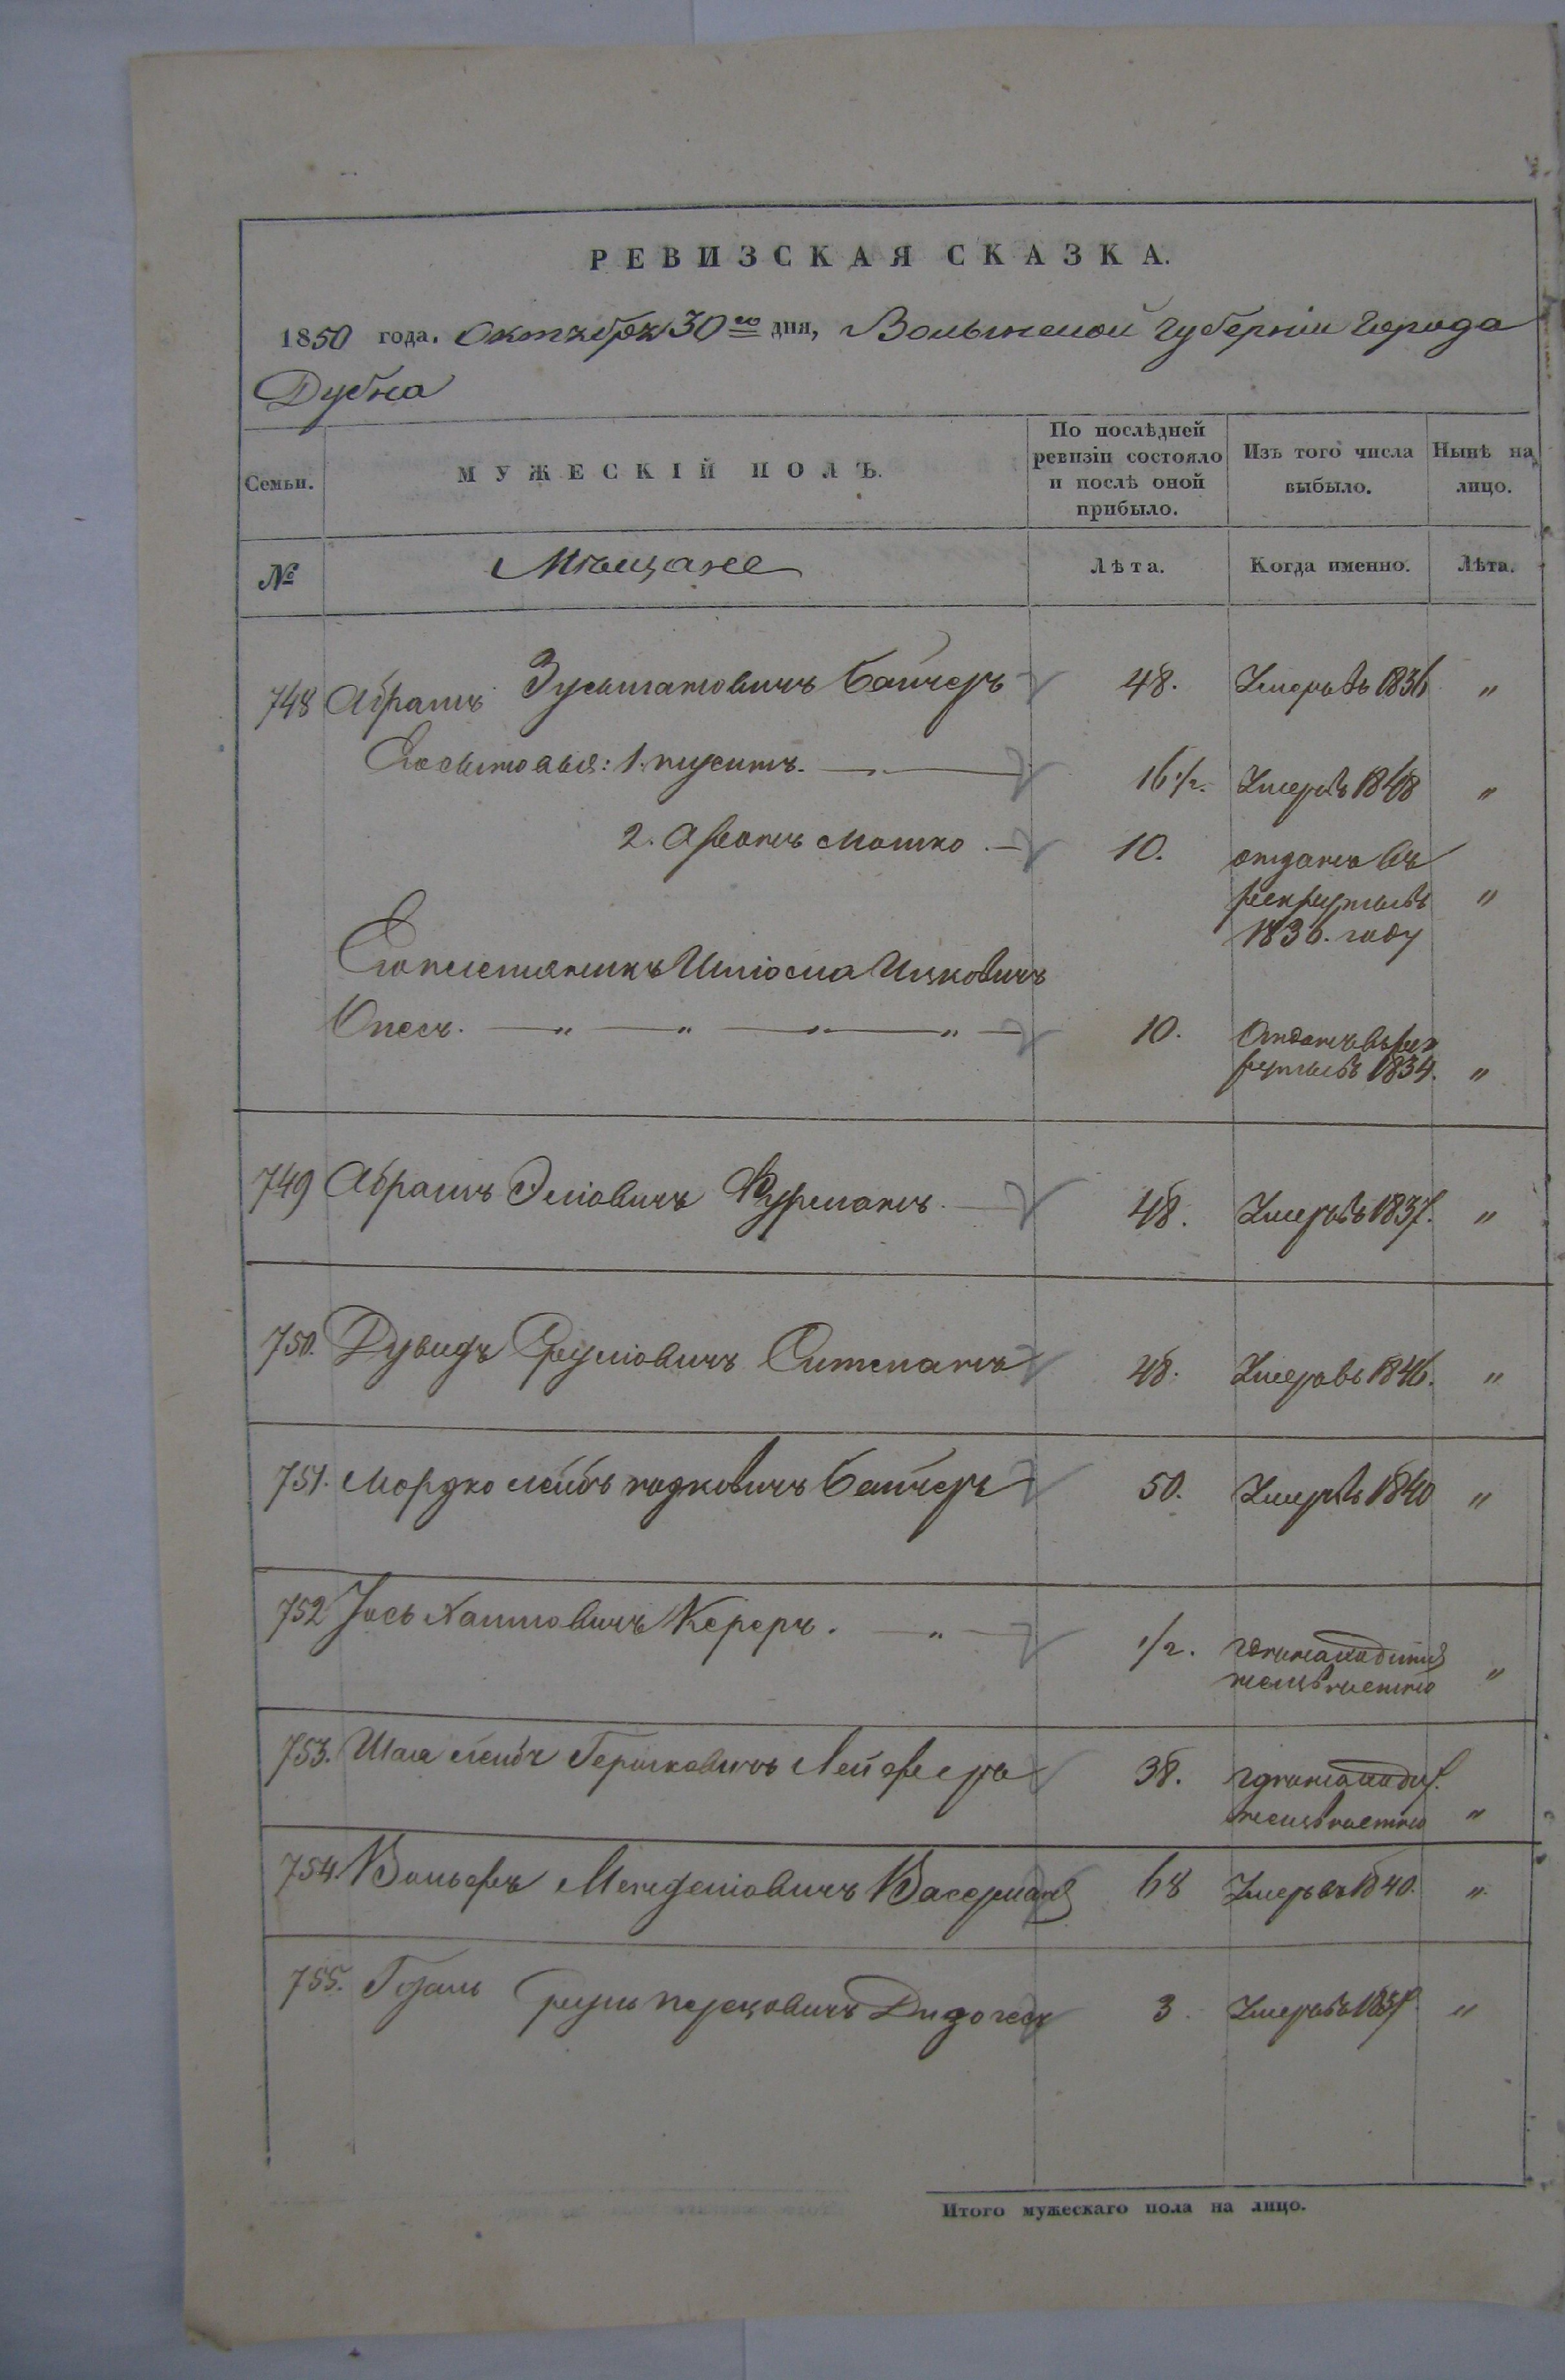 РЕВИЗСКАЯ СКАЗКА.
1850 года. Октября 30го дня, Волынской губерніи Города
Дубна
Семьи.
МУЖЕСКІЙ ПОЛЪ.
По послѣдней ревизіи состояло и послѣ оной прибыло.
Изъ того числа выбыло.
Нынѣ на лицо.
№
Мѣщане
Лѣта.
Когда именно.
Лѣта.
748 Абрамъ Зусьмановичъ Байчеръ 48. Умеръ въ 1836 "
Его сыновья: 1. 16 1/2. Умеръ въ 1848 "
2. Аронъ Мошко 10. отданъ въ
рекруты въ "
1836. году
Его племянникъ Ицковичъ
10. Отданъ въ рек
руты въ 1834. "
749 Абрамъ Эліовичъ Фурманъ 48. Умеръ въ 1837. "
750. Дувидъ Сруліовичъ 48. Умеръ въ 1846. "
751. Мордко Лейбъ Байчеръ 50. Умеръ въ 1840 "
752 Іось Хаимовичъ Кереръ. 1/2.
неизвѣстно "
753. Лейбъ Гершковичъ 38.
неизвѣстно "
754. Вольфъ Менделіовичъ Васерманъ 68 Умеръ въ 1840. "
755. Сруль 3 Умеръ въ "
Итого мужескаго пола на лицо.